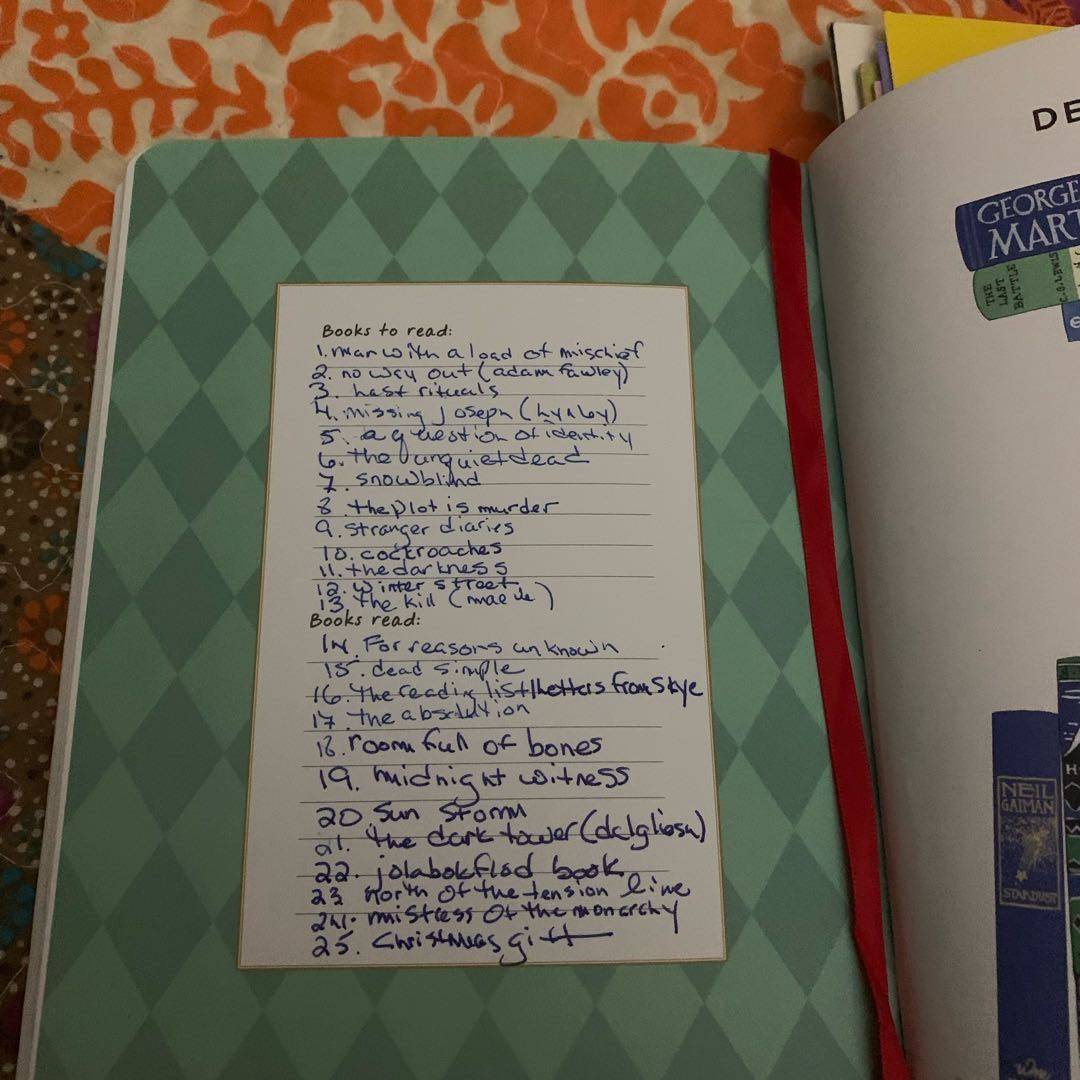 Books to read:
1. man with a load of mischief
2. no way out (adam fawley)
3. hast rituals
4. missing joseph (lynley)
5. a question of identity
6. the unquiet dead
7. snowblind
8. the plot is murder
9. stranger diaries
10. cockroaches
11. the darkness
12. winter street
13. the kill (maeve)
Books read:
14. For reasons unknown
15. dead simple
16. the reading list/letters from Skye
17. the absolution
18. room full of bones
19. midnight witness
20 sun storm
21. the dark tower (dalgliesh)
22. jolabokflod book
23 north of the tension line
24. mistress of the monarchy
25. Christmas gift
DE
GEORGE
MART
THE LAST BATTLE
C.S. LEWIS
NEIL
GAIMAN
STARDUST